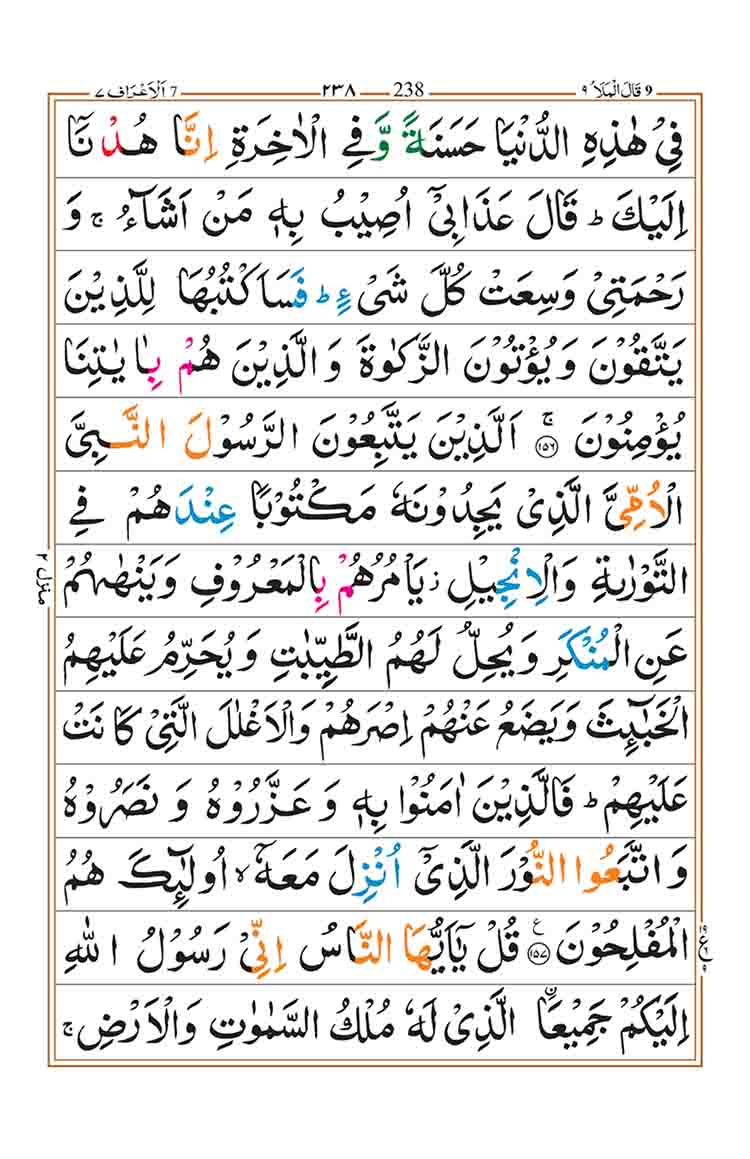 9 قَالَ الْمَلَاُ ٩ 238 ٢٣٨ 7 اَلْاَعْرَاف ٧
فِیْ هٰذِهِ الدُّنْیَا حَسَنَةً وَّفِی الْاٰخِرَةِ اِنَّا هُدْنَاۤ
اِلَیْكَ ؕ قَالَ عَذَابِیْۤ اُصِیْبُ بِهٖ مَنْ اَشَآءُ ۚ وَ
رَحْمَتِیْ وَسِعَتْ كُلَّ شَیْءٍ ؕ فَسَاَكْتُبُهَا لِلَّذِیْنَ
یَتَّقُوْنَ وَیُؤْتُوْنَ الزَّكٰوةَ وَالَّذِیْنَ هُمْ بِاٰیٰتِنَا
یُؤْمِنُوْنَ ۚ ﴿١٥٦﴾ اَلَّذِیْنَ یَتَّبِعُوْنَ الرَّسُوْلَ النَّبِیَّ
الْاُمِّیَّ الَّذِیْ یَجِدُوْنَهٗ مَكْتُوْبًا عِنْدَهُمْ فِی
التَّوْرٰىةِ وَالْاِنْجِیْلِ ؗ یَاْمُرُهُمْ بِالْمَعْرُوْفِ وَیَنْهٰىهُمْ
عَنِ الْمُنْكَرِ وَیُحِلُّ لَهُمُ الطَّیِّبٰتِ وَیُحَرِّمُ عَلَیْهِمُ
الْخَبٰٓىِٕثَ وَیَضَعُ عَنْهُمْ اِصْرَهُمْ وَالْاَغْلٰلَ الَّتِیْ كَانَتْ
عَلَیْهِمْ ؕ فَالَّذِیْنَ اٰمَنُوْا بِهٖ وَعَزَّرُوْهُ وَنَصَرُوْهُ
وَاتَّبَعُوا النُّوْرَ الَّذِیْۤ اُنْزِلَ مَعَهٗۤ ۙ اُولٰٓىِٕكَ هُمُ
الْمُفْلِحُوْنَ ﴿١٥٧﴾ ع قُلْ یٰۤاَیُّهَا النَّاسُ اِنِّیْ رَسُوْلُ اللّٰهِ
اِلَیْكُمْ جَمِیْعَا ۨ الَّذِیْ لَهٗ مُلْكُ السَّمٰوٰتِ وَالْاَرْضِ ۚ
منزل ٢